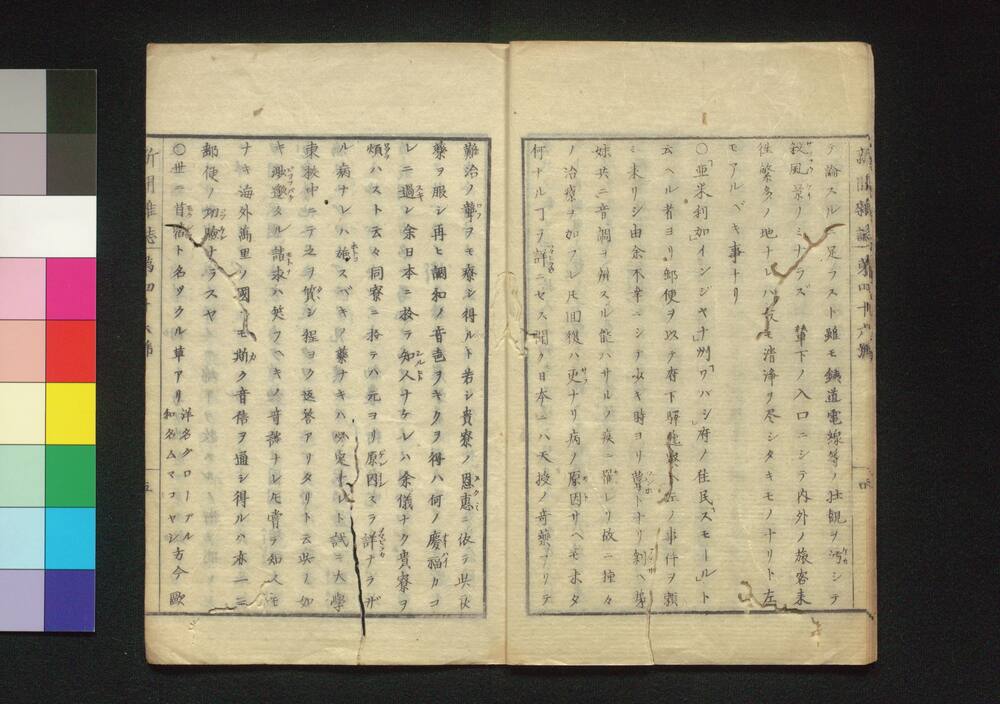 テ論スルニ足ラスト雖モ鉄道電線等ノ壮観ヲ汚シテ
殺風景ノミナラズ輦下ノ入口ニシテ内外ノ旅客来
往繁多ノ地ナレハ最モ清浄ヲ尽シタキモノナリト左
モアルベキ事ナリ
○亜米利加「インジヤナ」州「ワバシ」府ノ住民「スモール」ト
云ヘル者ヨリ郵便ヲ以テ府下駅逓寮ヘ左ノ事件ヲ頼
ミ来リシ由余不幸ニシテ水キ時ヨリ聾トナリ剰ヘ弟
妹共ニ音調ヲ弁スル能ハサルノ疾ニ罹レリ故ニ種々
ノ治療ヲ加フレ𪜈回復ハ更ナリ病ノ原因サヘモ未タ
何ナルヿヲ詳ニセス聞ク日本ニハ天授ノ奇薬アリテ
新聞雑誌 第四十六号
難治ノ聾ヲモ療シ得ルト若シ貴寮ノ恩恵ニ依テ此良
薬ヲ服シ再ヒ調和ノ音色ヲキクヲ得ハ何ノ慶福カコ
レニ過レシ余日本ニ於テ知人ナケレハ余儀ナク貴寮ヲ
煩ハスト云々同寮ニ於テハ元ヨリ原因スラ詳ナラザ
ル病ナレハ施スベキノ薬ナキハ必定ナレト試ニ大学
東校中ニテ之ヲ質シ程ヨク返答アリタリト云此ノ如
キ懇遠タル請求ハ笑フヘキノ奇譚ナレ𪜈嘗テ知人モ
ナキ海外万里ノ国ニモ斯ク音信ヲ通シ得ルハ亦一ニ
郵便ノ功験ナラスヤ
○世ニ苜蓿ト名ツクル草アリ 洋名クローブル 和名ムマコヤシ 古今欧
新聞雑誌 第四十六号 五